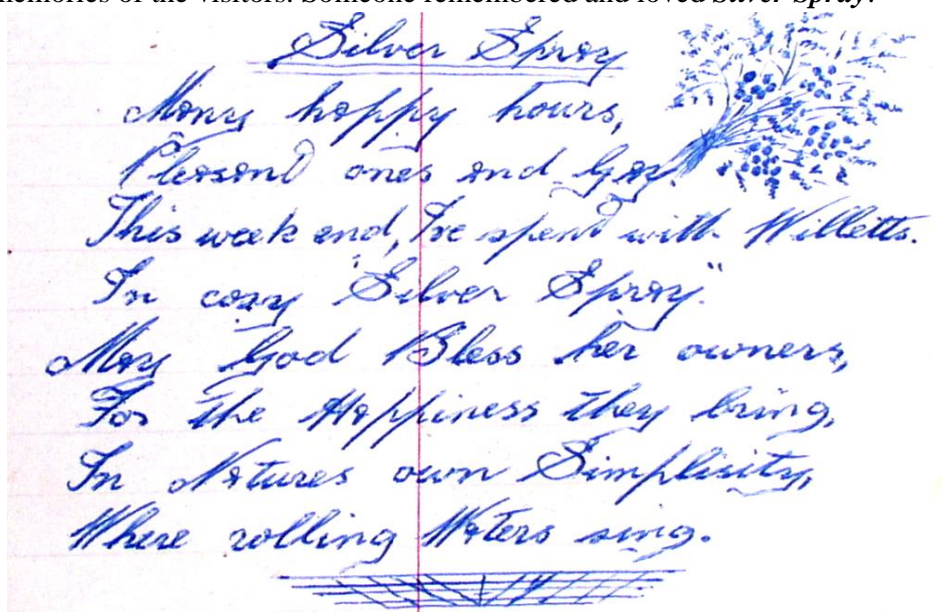 memories of the visitors. Someone remembered and loved Silver Spray.
Silver Spray
Many happy hours,
Pleasant ones and Gay.
This week end, I've spent with Willetts.
In cozy "Silver Spray."
May God Bless her owners,
For the Happiness they bring,
In Natures own Simplisity,
Where rolling Waters sing.